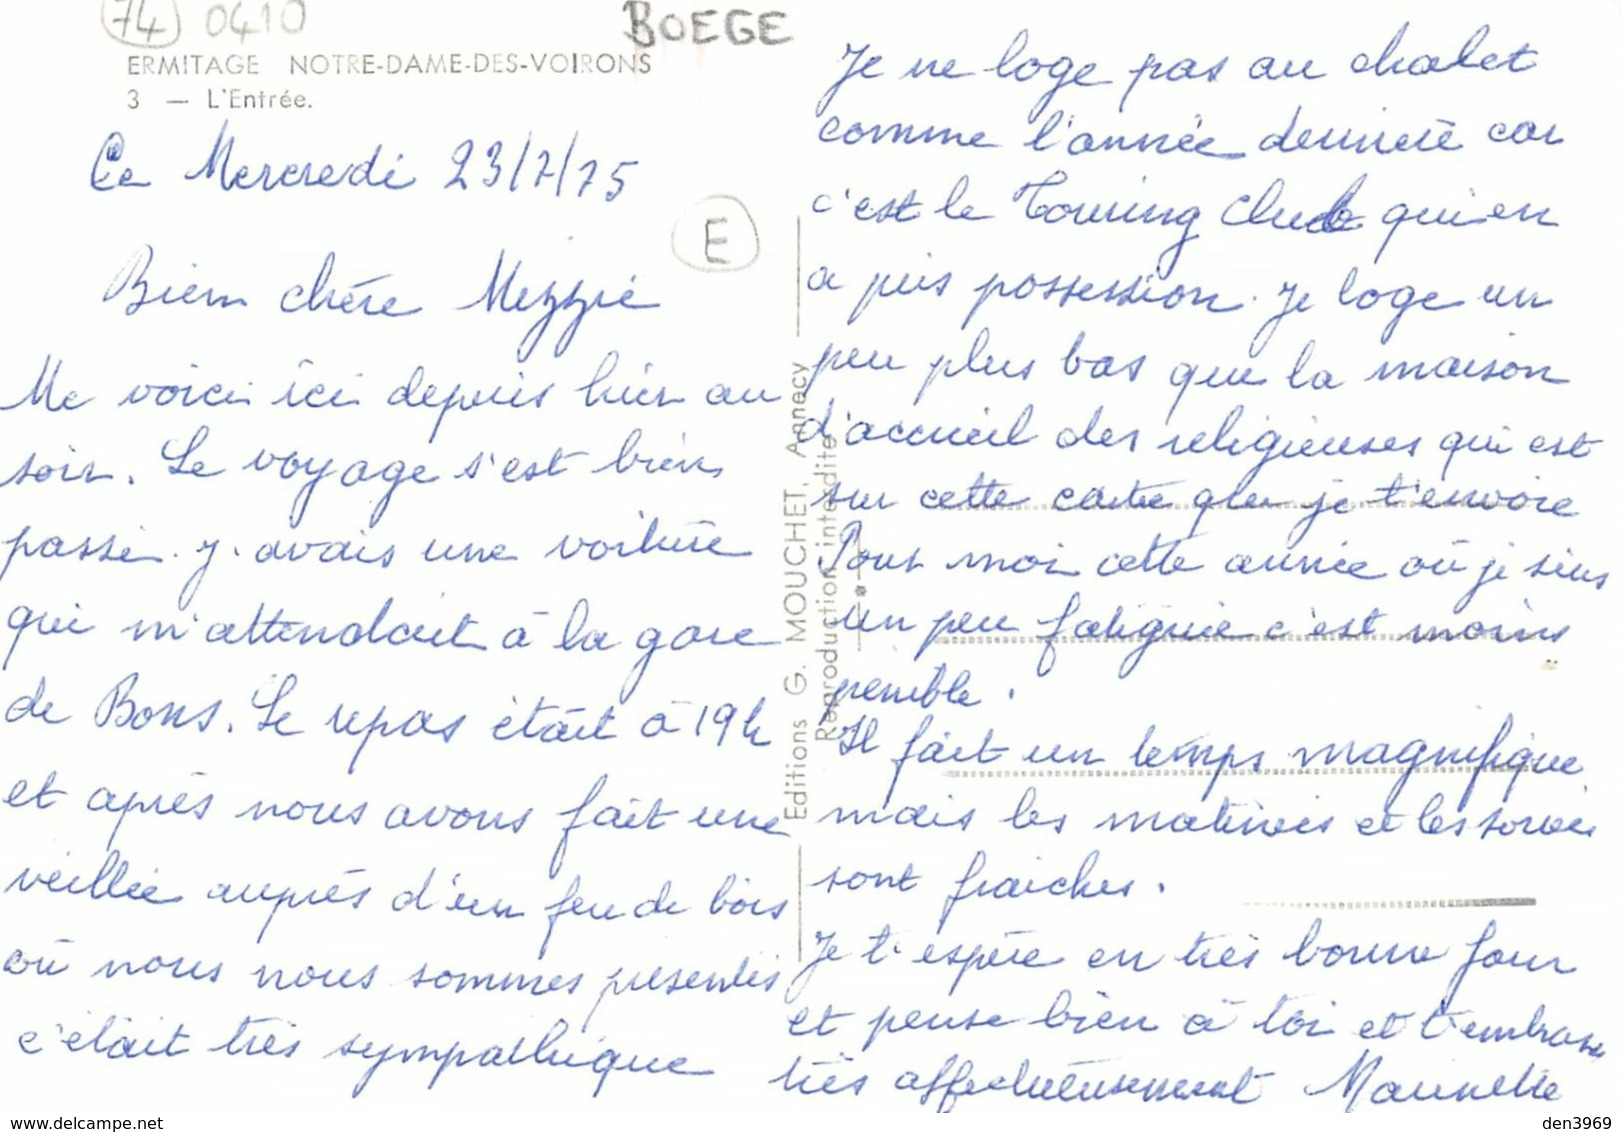 74 0410
BOEGE
ERMITAGE NOTRE-DAME-DES-VOIRONS
3 — L'Entrée.
Ce Mercredi 23/7/75
E
Bien chère Mezzie
Me voici ici depuis hier au
soir. Le voyage s'est bien
passé. J'avais une voiture
qui m'attendait à la gare
de Bons. Le repas était à 19h
et après nous avons fait une
veillée auprès d'un feu de bois
où nous nous sommes présentés
c'était très sympathique
Editions G. MOUCHET, Annecy
Reproduction interdite
Je ne loge pas au chalet
comme l'année dernière car
c'est le Touring Club qui en
a pris possession. Je loge un
peu plus bas que la maison
d'accueil des religieuses qui est
sur cette carte que je t'envoie
Pour moi cette année où je suis
un peu fatiguée c'est moins
penible.
Il fait un temps magnifique
mais les matinées et les soirées
sont fraiches.
Je t'espère en très bonne forme
et pense bien à toi et t'embrasse
très affectueusement
den3969